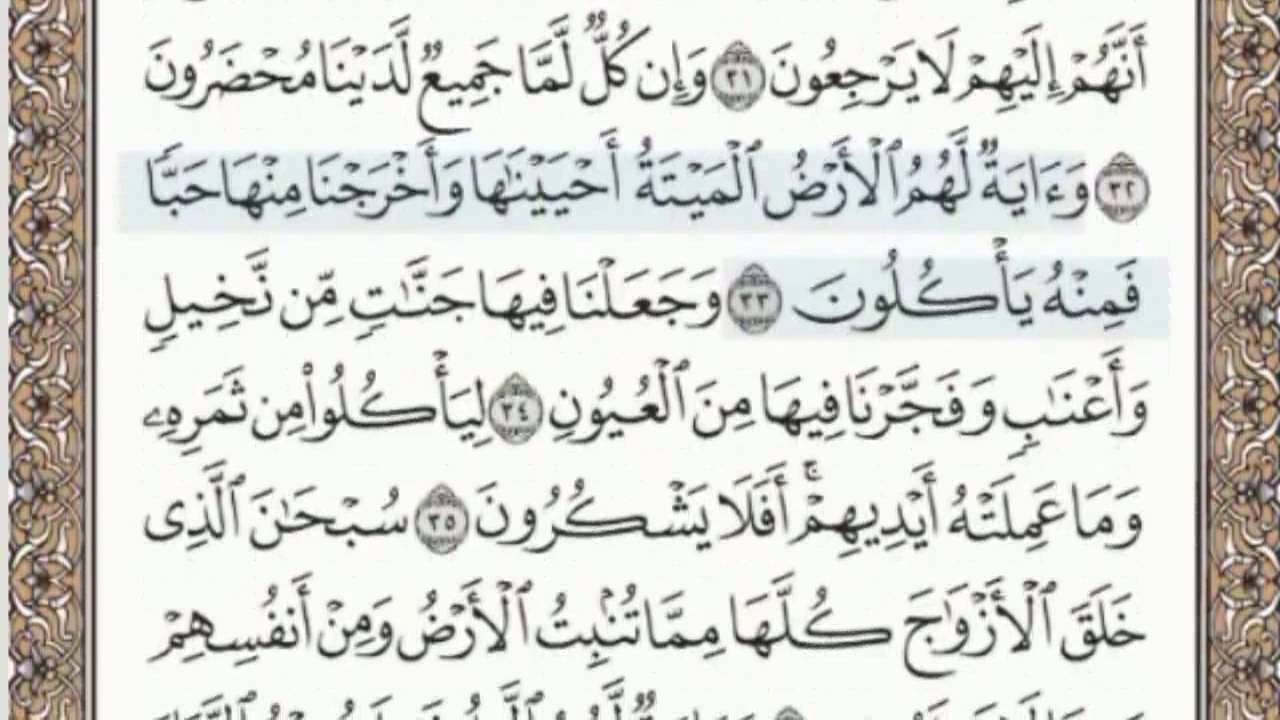 أَنَّهُمْ إِلَيْهِمْ لَا يَرْجِعُونَ ٣١ وَإِن كُلٌّ لَّمَّا جَمِيعٌ لَّدَيْنَا مُحْضَرُونَ
٣٢ وَءَايَةٌ لَّهُمُ ٱلْأَرْضُ ٱلْمَيْتَةُ أَحْيَيْنَٰهَا وَأَخْرَجْنَا مِنْهَا حَبًّا
فَمِنْهُ يَأْكُلُونَ ٣٣ وَجَعَلْنَا فِيهَا جَنَّٰتٍ مِّن نَّخِيلٍ
وَأَعْنَٰبٍ وَفَجَّرْنَا فِيهَا مِنَ ٱلْعُيُونِ ٣٤ لِيَأْكُلُوا۟ مِن ثَمَرِهِۦ
وَمَا عَمِلَتْهُ أَيْدِيهِمْ ۚ أَفَلَا يَشْكُرُونَ ٣٥ سُبْحَٰنَ ٱلَّذِى
خَلَقَ ٱلْأَزْوَٰجَ كُلَّهَا مِمَّا تُنۢبِتُ ٱلْأَرْضُ وَمِنْ أَنفُسِهِمْ